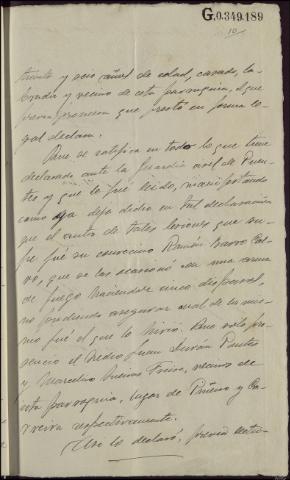 G.0.349.189
10
treinta y seis años de edad, casado, la-
brador y vecino de esta parroquia, el que
previa promesa que prestó en forma le-
gal declara:
Que se ratifica en todo lo que tiene
declarado ante la Guardia civil de Puen-
tes y que le fué leido, manifestando
como ya deja dicho en tal declaración
que el autor de tales lesiones que su-
fre fué su convecino Ramón Barro Cal-
vo, que se las ocasionó con una arma
de fuego haciéndole cinco disparos,
no pudiendo asegurar cual de los mis-
mos fué el que lo hirió. Que solo pre-
sencio el hecho Juan Durán Puentes
y Marcelino Freire, vecinos de
esta parroquia, lugar de Piñeiro y
respectivamente.
Asi lo declaró, previa lectu-